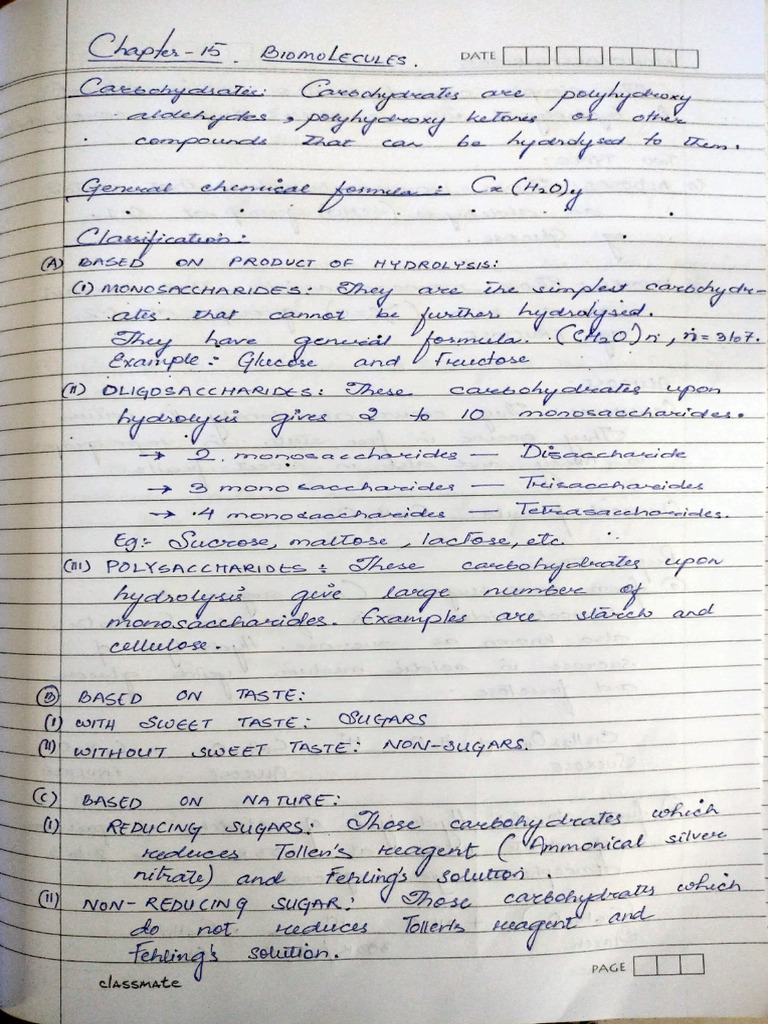 Chapter-15. BIOMOLECULES. DATE
Carbohydrates: Carbohydrates are polyhydroxy
aldehydes, polyhydroxy ketones or other
compounds that can be hydrolysed to them.
General chemical formula: Cx(H2O)y
Classification:
(A) BASED ON PRODUCT OF HYDROLYSIS:
(I) MONOSACCHARIDES: They are the simplest carbohydr-
ates that cannot be further hydrolysed.
They have general formula. (CH2O)n, n=3to7.
Example: Glucose and Fructose
(II) OLIGOSACCHARIDES: These carbohydrates upon
hydrolysis gives 2 to 10 monosaccharides.
→ 2 monosaccharides — Disaccharide
→ 3 monosaccharides — Trisaccharides
→ 4 monosaccharides — Tetrasaccharides.
Eg:- Sucrose, maltose, lactose, etc.
(III) POLYSACCHARIDES: These carbohydrates upon
hydrolysis give large number of
monosaccharides. Examples are starch and
cellulose.
(B) BASED ON TASTE:
(I) WITH SWEET TASTE: SUGARS
(II) WITHOUT SWEET TASTE: NON-SUGARS.
(C) BASED ON NATURE:
(I) REDUCING SUGARS: Those carbohydrates which
reduces Tollen's reagent (Ammonical silver
nitrate) and Fehling's solution.
(II) NON-REDUCING SUGAR: Those carbohydrates which
do not reduces Tollen's reagent and
Fehling's solution.
classmate PAGE